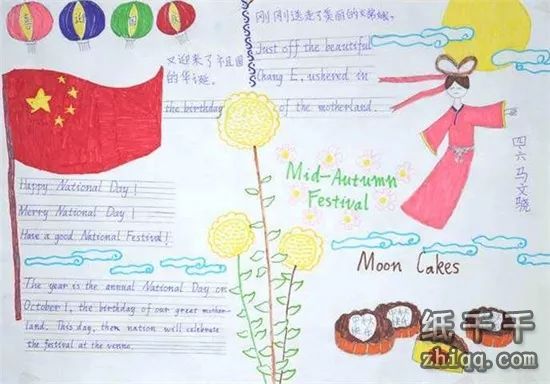 刚刚送走了美丽的嫦娥,
又迎来了祖国
的华诞。
Just off the beautiful
Chang E, ushered in
the birthday of the motherland.
Happy National Day!
Merry National Day!
Have a good National Festival!
The year is the annual National Day on
October 1, the birthday of our great mother-
land. This day, then nation will celebrate
the festival at the venue.
Mid-Autumn
Festival
Moon Cakes
四六马文骁
纸千千
zhiqq.com